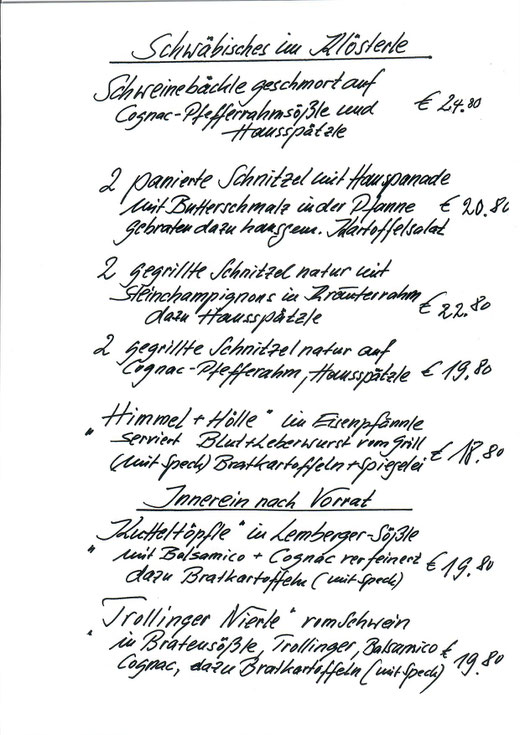 Schwäbisches im Klösterle
Schweinebäckle geschmort auf
Cognac-Pfefferrahmsößle und € 24.80
Hausspätzle
2 panierte Schnitzel mit Hauspanade
mit Butterschmalz in der Pfanne € 20.80
gebraten dazu hausgem. Kartoffelsalat
2 gegrillte Schnitzel natur mit
Steinchampignons in Kräuterrahm € 22.80
dazu Hausspätzle
2 gegrillte Schnitzel natur auf
Cognac-Pfefferrahm, Hausspätzle € 19.80
"Himmel + Hölle" im Eisenpfännle
serviert Blut+Leberwurst vom Grill € 18.80
(mit Speck) Bratkartoffeln + Spiegelei
Innerein nach Vorrat
"Kutteltöpfle" in Lemberger-Sößle
mit Balsamico + Cognac verfeinert € 19.80
dazu Bratkartoffeln (mit Speck)
"Trollinger Nierle" vom Schwein
in Bratensößle, Trollinger, Balsamico €
Cognac, dazu Bratkartoffeln (mit Speck) 19.80